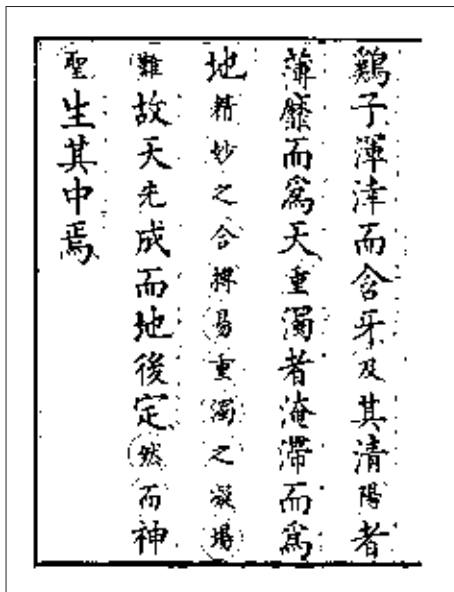 鷄子渾沌而含牙及其清陽者
薄靡而為天重濁者淹滯而為
地精妙之合摶易重濁之凝竭
難故天先成而地後定然而神
聖生其中焉